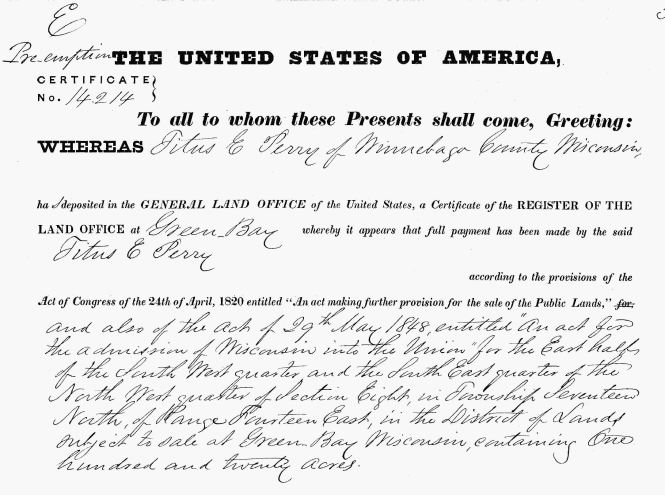 E
Pre-emption THE UNITED STATES OF AMERICA,
CERTIFICATE
No. 14214
To all to whom these Presents shall come, Greeting:
WHEREAS Titus E Perry of Winnebago County Wisconsin,
ha s deposited in the GENERAL LAND OFFICE of the United States, a Certificate of the REGISTER OF THE
LAND OFFICE at Green Bay whereby it appears that full payment has been made by the said
Titus E Perry
according to the provisions of the
Act of Congress of the 24th of April, 1820 entitled "An act making further provision for the sale of the Public Lands," for:
and also of the act of 29th May 1848, entitled "An act for
the admission of Wisconsin into the Union" for the East half
of the South West quarter and the South East quarter of the
North West quarter of Section Eight, in Township Seventeen
North, of Range Fourteen East, in the District of Lands
subject to sale at Green Bay Wisconsin, containing One
hundred and twenty acres.